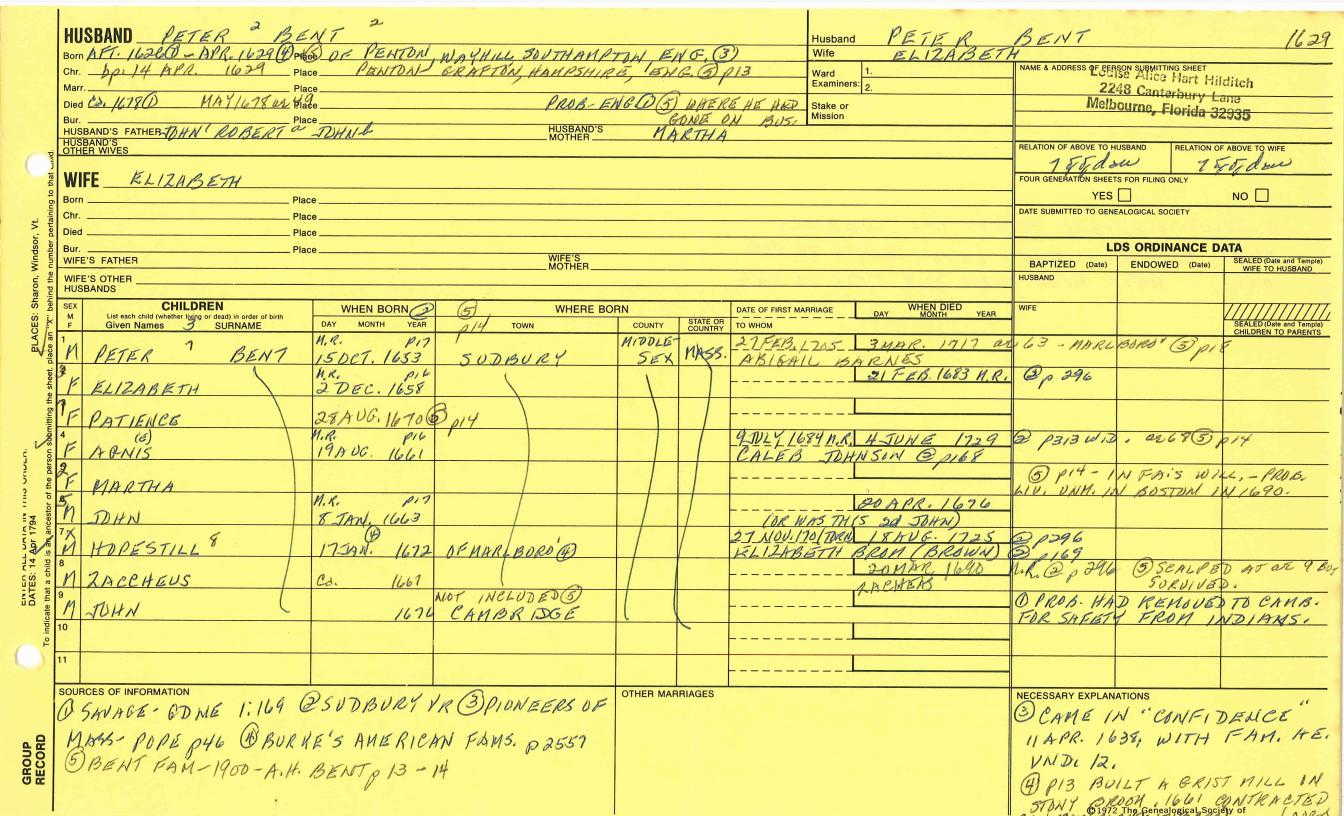 HUSBAND PETER 2 BENT 2
Born AFT. 1628① - APR. 1629 ④ Place ⑤ OF PENTON, WAYHILL SOUTHAMPTON, ENG. ③
Chr. bp. 14 APR. 1629 Place PENTON GRAFTON, HAMPSHIRE, ENG. ⑤ p13
Marr. Place
Died Ca. 1678① MAY 1678 ae 49 Place PROB- ENG ① ⑤ WHERE HE HAD
Bur. Place GONE ON BUS.
HUSBAND'S FATHER JOHN' ROBERTa JOHNb HUSBAND'S MOTHER MARTHA
HUSBAND'S OTHER WIVES
Husband PETER BENT 1629
Wife ELIZABETH
Ward Examiners: 1.
2.
Stake or Mission
NAME & ADDRESS OF PERSON SUBMITTING SHEET
Louise Alice Hart Hilditch
2248 Canterbury Lane
Melbourne, Florida 32935
RELATION OF ABOVE TO HUSBAND RELATION OF ABOVE TO WIFE
FOUR GENERATION SHEETS FOR FILING ONLY
YES NO
DATE SUBMITTED TO GENEALOGICAL SOCIETY
WIFE ELIZABETH
Born Place
Chr. Place
Died Place
Bur. Place
WIFE'S FATHER WIFE'S MOTHER
WIFE'S OTHER HUSBANDS
LDS ORDINANCE DATA
BAPTIZED (Date) ENDOWED (Date) SEALED (Date and Temple) WIFE TO HUSBAND
HUSBAND
WIFE
SEALED (Date and Temple) CHILDREN TO PARENTS
SEX M F
CHILDREN
List each child (whether living or dead) in order of birth
Given Names 3 SURNAME
WHEN BORN ②
DAY MONTH YEAR
⑤ p14 WHERE BORN
TOWN COUNTY STATE OR COUNTRY
DATE OF FIRST MARRIAGE
TO WHOM
WHEN DIED
DAY MONTH YEAR
1 M.R. p17 MIDDLE- 27 FEB. 1705 3 MAR. 1717 ae 63 - MARLBORO' ⑤ p18
M PETER 7 BENT 15 OCT. 1653 SUDBURY SEX MASS. ABIGAIL BARNES
M.R. p16 21 FEB. 1683 M.R. ② p 296
F ELIZABETH 2 DEC. 1658
F PATIENCE 28 AUG. 1670 ⑤ p14
4 (G) M.R. p16 9 JULY 1684 M.R. 4 JUNE 1729 ② p313 WID. ae 68 ⑤ p14
F AGNIS 19 AUG. 1661 CALEB JOHNSON @ p168
2 ⑤ p14 - IN FA'S WILL, - PROB.
F MARTHA LIV. UNM. IN BOSTON IN 1690.
5 M.R. p17 20 APR. 1676
M JOHN 8 JAN. 1663 (OR WAS THIS 2d JOHN)
7 ④ 27 NOV. 1701 18 AUG. 1725 ② p296
M HOPESTILL 8 17 JAN. 1672 OF MARLBORO' ④ ELIZABETH BROM (BROWN) ② p169
8 20 MAR 1690 M.R. ② p 296 ⑤ SCALPED AT ae 9 But
M ZACCHEUS Ca. 1667 ZACHERS SURVIVED.
9 NOT INCLUDED ⑤ ① PROB. HAD REMOVED TO CAMB.
M JOHN 1676 CAMBRIDGE FOR SAFETY FROM INDIANS.
10
11
SOURCES OF INFORMATION
① SAVAGE - GDNE 1:169 ② SUDBURY VR ③ PIONEERS OF
MASS- POPE p46 ④ BURKE'S AMERICAN FAMS. p 2557
⑤ BENT FAM - 1900 - A.H. BENT p 13 - 14
OTHER MARRIAGES
NECESSARY EXPLANATIONS
③ CAME IN "CONFIDENCE"
11 APR. 1638, WITH FAM. AE.
UND. 12.
④ p13 BUILT A GRIST MILL IN
STONY BROOK. 1661 CONTRACTED
©1972 The Genealogical Society of
PLACES: Sharon, Windsor, Vt.
To indicate that a child is an ancestor of the person submitting the sheet, place an "X" behind the number pertaining to that child.
ENTER ALL DATA IN THIS ORDER:
DATES: 14 Apr 1794
GROUP RECORD